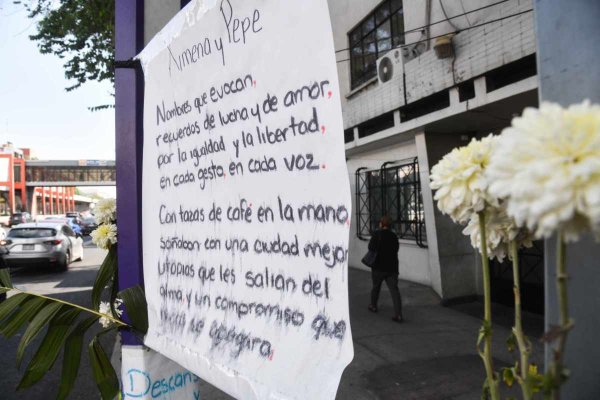 Ximena y Pepe
Nombres que evocan,
recuerdos de lucha y de amor,
por la igualdad y la libertad,
en cada gesto, en cada voz.
Con tazas de café en la mano,
soñaban con una ciudad mejor
utopías que les salían del
alma y un compromiso que
se apagara.
Descans